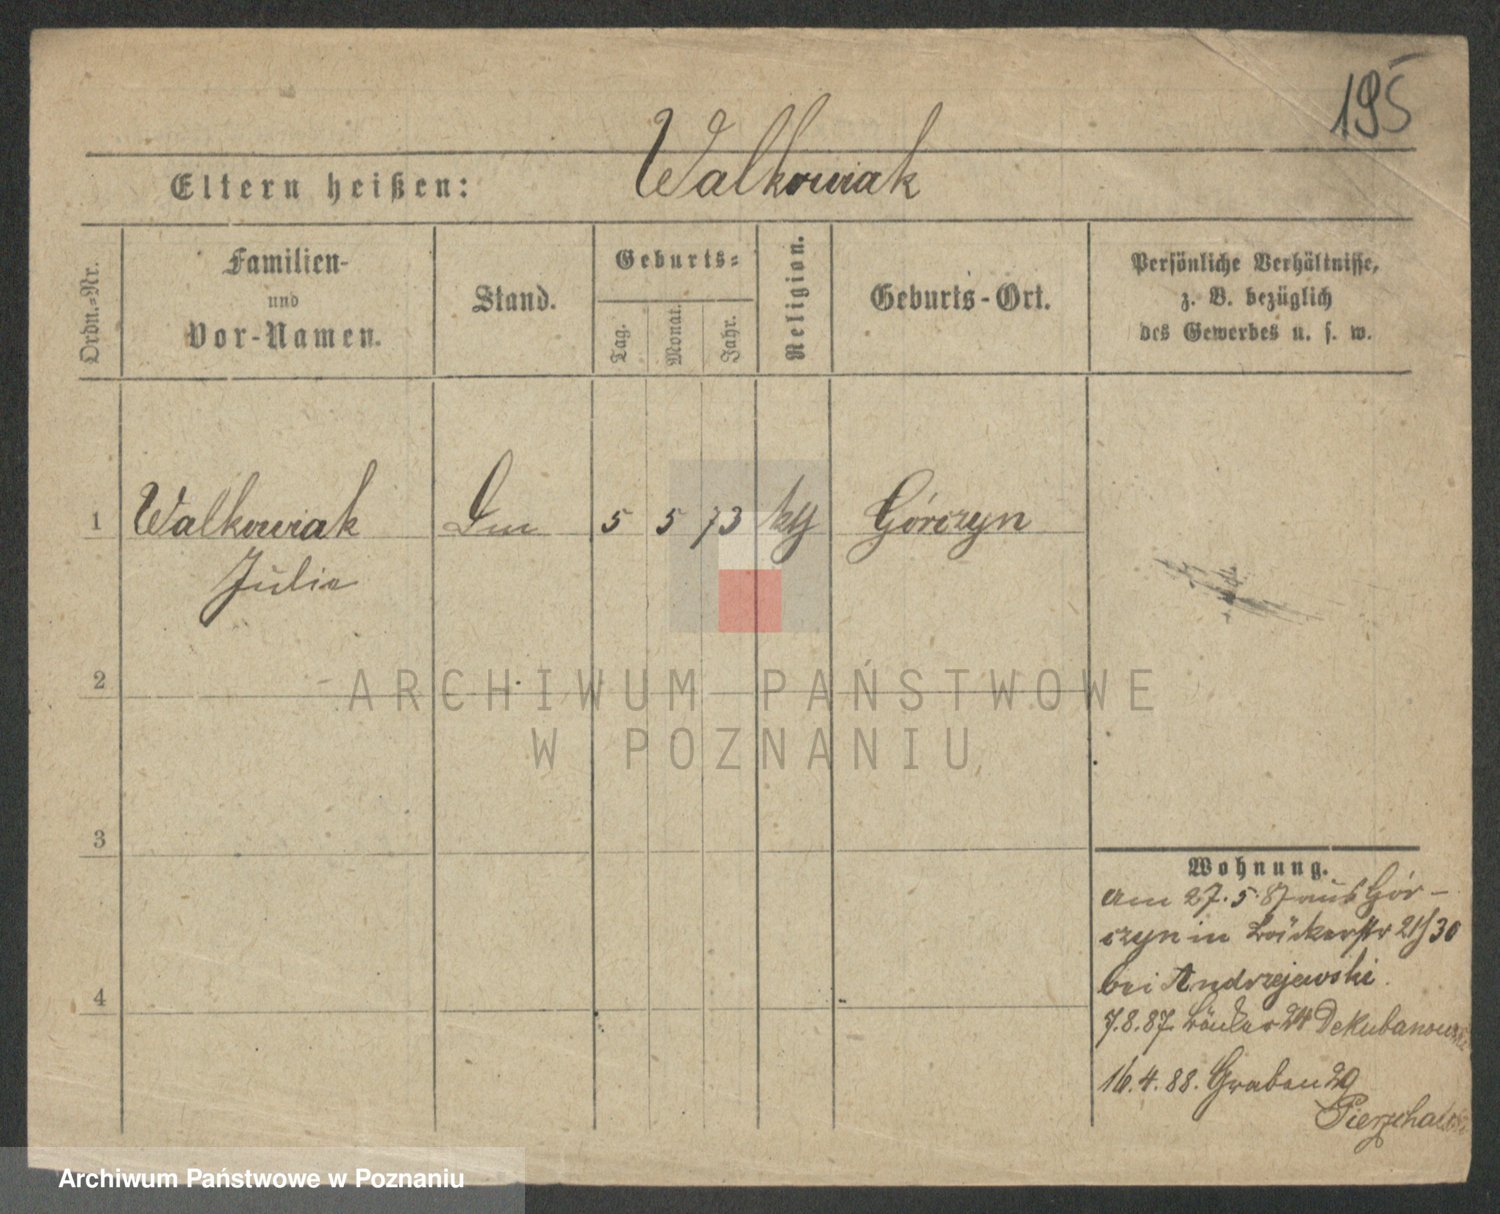 195
Eltern heißen: Walkowiak
Ordn.-Nr.
Familien-
und
Vor-Namen.
Stand.
Geburts-
Tag.
Monat.
Jahr.
Religion.
Geburts-Ort.
Persönliche Verhältnisse,
z. B. bezüglich
des Gewerbes u. s. w.
1 Walkowiak 5 5 73 Górczyn
Julie
2
3
4
Wohnung.
am 27.5.87 aus Gór-
czyn in Bäckerstr 21/30
bei Andrzejewski.
7.8.87. Bäcker 24
16.4.88. Graben 29
ARCHIWUM PAŃSTWOWE
W POZNANIU
Archiwum Państwowe w Poznaniu